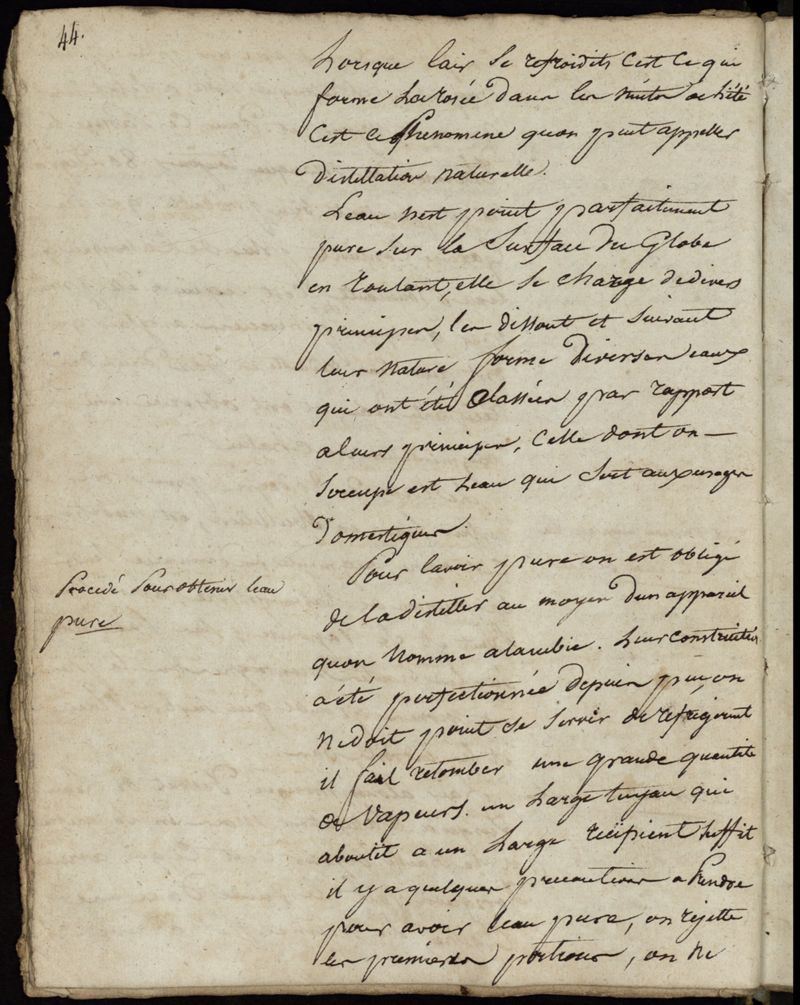 44.
Lorsque lair se refroidits C'est ce qui
forme la rosée dans les nuits de l'été
C'est ce Phenomene quon peut appeller
Distillation naturelle.
Leau n'est point parfaitement
pure sur la Surface Du Globe
en roulant, elle se charge de divers
principes, les dissout et suivant
leur nature forme diverses eaux
qui ont été Classées par rapport
a leurs principes, Celle dont on
soccupe est Leau qui sert aux usages
Domestiques.
Procedé Pour obtenir leau
pure
Pour lavoir pure on est obligé
de la distiller au moyen Dun appareil
quon Nomme alambic. Leur construction
a été perfectionnée depuis peu, on
ne doit point se servir de refrigerent
il fait retomber une grande quantite
de Vapeurs. un Large tuyau qui
aboutit a un Large recipient suffit
il y a quelques precautions a Prendre
pour avoir leau pure, on rejette
les premieres portions, on ne